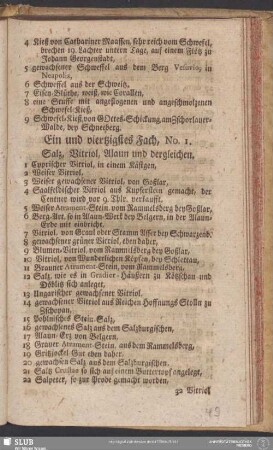 4 Kieß von Cathariner Maassen, sehr reich vom Schwefel,
brechen 19. Lachter untern Tage, auf einem Flötz zu
Johann Georgenstadt.
5 gewachsener Schweffel aus dem Berg Vesuvio, in
Neapolis,
6 Schweffel aus der Schweitz,
7 Eisen-Blüthe, weiß, wie Corallen,
8 eine Stuffe mit angeflogenen und angeschmoltzenen
Schwefel-Kieß,
9 Schwefel-Kieß, von GOttes-Schickung am Zschorlauer-
Walde, bey Schneeberg.
Ein und viertzigstes Fach, No. 1.
Saltz, Vitriol, Alaun und dergleichen.
1 Cyprischer Vitriol, in einem Kästgen,
2 Weiser Vitriol,
3 Weiser gewachsener Vitriol, von Goßlar,
4 Saalfeldischer Vitriol aus Kupferstein gemacht, der
Centner wird vor 9. Thlr. verkaufft.
5 Weisser Atrament-Stein, vom Rammelsberg bey Goßlar,
6 Berg-Art, so in Alaun-Werck bey Belgern, in der Alaun-
Erde mit einbricht.
7 Vitriol, von Graul ober Stamm Asser bey Schwarzenb.
8 gewachsener grüner Vitriol, eben daher,
9 Blumen-Vitriol, vom Rammelsberg bey Goßlar,
10 Vitriol, vom Wunderlichen Köpfen, bey Schlettau,
11 Brauner Atrament-Stein, vom Rammelsberg,
12 Saltz, wie es in Gradier-Häusern zu Kötzschau und
Döblig sich anleget.
13 Ungarischer gewachsener Vitriol,
14 gewachsener Vitriol aus Reichen Hoffnungs Stolln zu
Zschopau,
15 Pohlnisches Stein-Saltz,
16 gewachsenes Saltz aus dem Saltzburgischen,
17 Alaun-Ertz von Belgern,
18 Grauer Atrament-Stein, aus dem Rammelsberg,
19 Gritzlockel Gut eben daher.
20 gewachsen Saltz aus dem Saltzburgischen.
21 Saltz Crustae so sich auf einem Buttertopf angelegt,
22 Salpeter, so zur Probe gemacht worden,
32 Vitriol
49
SLUB